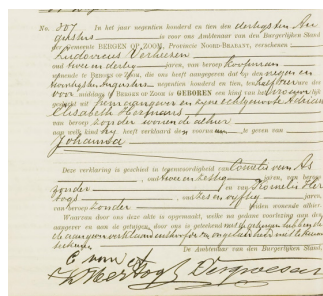 No. 307. In het jaar negentien honderd en tien den dertigsten Au
gustus is voor ons Ambtenaar van den Burgerlijken Stand
der Gemeente BERGEN OP ZOOM, Provincie NOORD-BRABANT, verschenen
Ludovicus
oud twee en dertig jaren, van beroep Koopman
wonende te BERGEN OP ZOOM, die ons heeft aangegeven dat op den negen en
twintigsten Augustus negentien honderd en tien, te
voor middag te BERGEN OP ZOOM is GEBOREN een kind van het vrouwelijk
geslacht uit hem aangever en zijne echtgenoote Adriana
Elisabeth
van beroep zonder, wonende alhier
aan welk kind hij heeft verklaard den voornaam te geven van
Johanna
Deze verklaring is geschied in tegenwoordigheid van Cornelis van As
zonder, oud twee en zestig jaren, van beroep
en van Kornelis Her
togs, oud zes en vijftig jaren,
van beroep zonder, beiden wonende alhier.
Waarvan door ons deze akte is opgemaakt, welke na gedane voorlezing aan den
aangever en aan de getuigen, door ons is geteekend met de getuigen hebbende
de aangever verklaard
De Ambtenaar van den Burgerlijken Stand,
C. van As
K. Hertogs